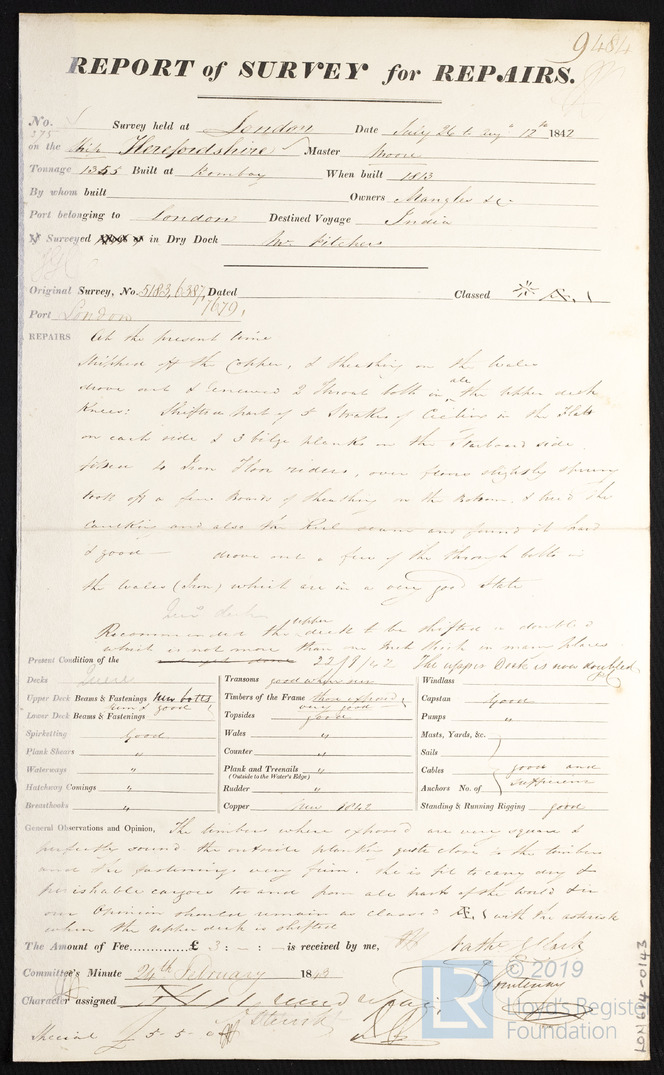 9484
REPORT of SURVEY for REPAIRS.
No. 375 Survey held at London Date July 26 to Augt 12th 1842
on the Ship Herefordshire Master Moore
Tonnage 1355 Built at Bombay When built 1813
By whom built Owners Mangles &c
Port belonging to London Destined Voyage India
Surveyed Afloat or in Dry Dock Mr Pitchers
Original Survey, No. 5183, 6387, 7679, Dated Classed Æ 1
Port London
REPAIRS At the present time
Stripped off the Copper, & Sheathing on the Wales
drove out & renewed 2 Throat bolts in all the upper deck
Knees: Shifted part of 5 Strakes of Ceiling in the Flats
on each side & 3 bilge planks on the Starboard side
fitted 10 Iron Floor riders, over floors slightly sprung
took off a few Boards of Sheathing on the Bottom, & tried the
Caulking and also the Keel seams and found it hard
& good drove out a few of the through bolts in
the Wales (Iron) which are in a very good State
Recommended the upper deck to be shifted or doubled
which is not more than an Inch thick in many places
Present Condition of the 22/8/42 The upper Deck is now doubled
Decks
Upper Deck Beams & Fastenings New bolts
Lower Deck Beams & Fastenings & good
Spirketting Good
Plank Shears "
Waterways "
Hatchway Comings "
Breasthooks "
Transoms good when seen
Timbers of the Frame when exposed very good
Topsides good
Wales "
Counter "
Plank and Treenails "
(Outside to the Water's Edge)
Rudder "
Copper New 1842
Windlass
Capstan Good
Pumps "
Masts, Yards, &c.
Sails
Cables good and
Anchors No. of sufficient
Standing & Running Rigging good
General Observations and Opinion, The timbers where exposed are very square &
perfectly sound the outside planking quite close to the timbers
and the fastenings very firm. She is fit to carry dry &
perishable cargoes to and from all parts of the World & in
our Opinion should remain as classed Æ 1 with the asterisk
when the upper deck is shifted
The Amount of Fee............£ 3 : - : - is received by me,
Nathl Clark
Committee's Minute 24th February 1843
Character assigned
Special £ 5-5-0
LON 614-0143
LR
© 2019
Lloyd's Register
Foundation